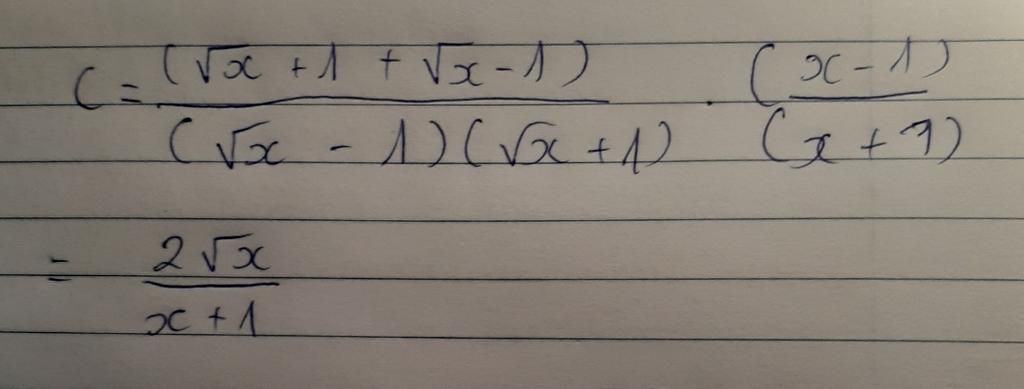 C = (√x + 1 + √x - 1) / (√x - 1)(√x + 1) . (x - 1) / (x + 7)
= 2√x / x + 1